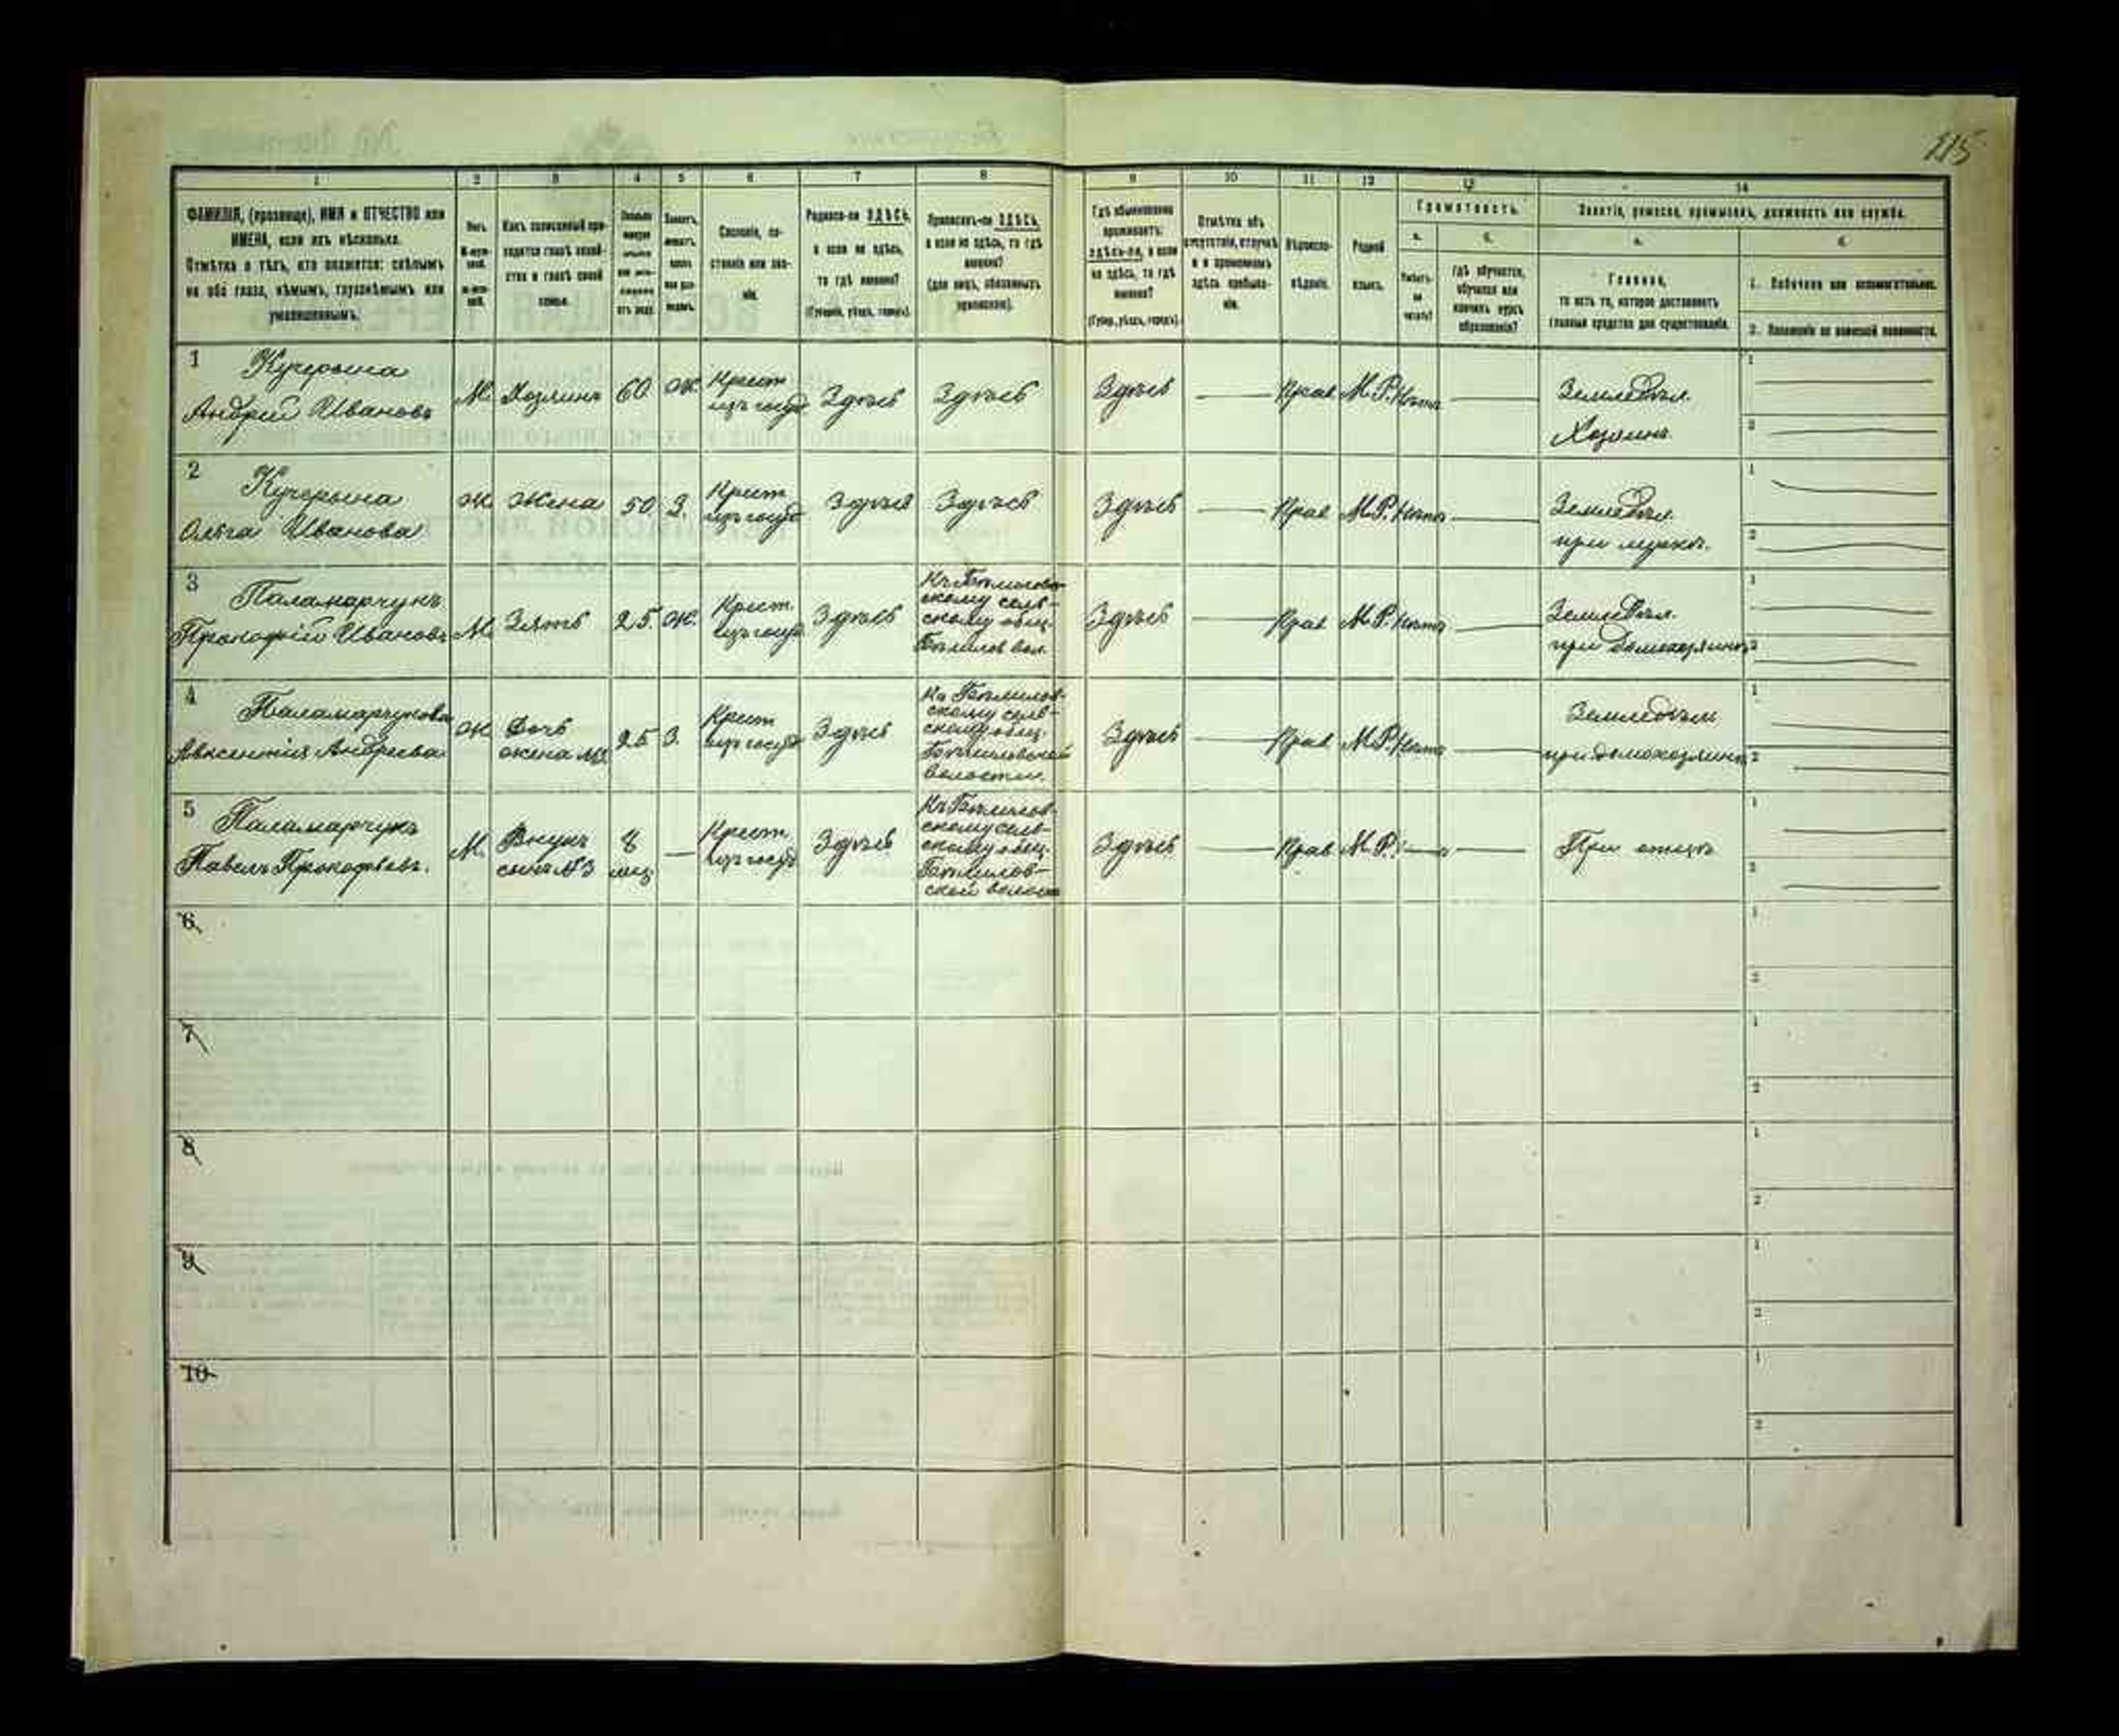 115
1 2 3 4 5 6 7 8 9 10 11 12 13 14
ФАМИЛІЯ, (прозвище), ИМЯ и ОТЧЕСТВО или
ИМЕНА, если ихъ нѣсколько.
Отмѣтка о тѣхъ, кто окажется: слѣпымъ
на оба глаза, нѣмымъ, глухонѣмымъ или
умалишеннымъ.
Полъ.
Какъ записанный при-
ходится главѣ хозяй-
ства и главѣ своей
семьи.
Сословіе, со-
стояніе или зва-
ніе.
Родился-ли ЗДѢСЬ,
а если не здѣсь,
то гдѣ именно?
(Губернія, уѣздъ, городъ).
Приписанъ-ли ЗДѢСЬ,
а если не здѣсь, то гдѣ
именно?
(для лицъ, обязанныхъ
припискою).
Гдѣ обыкновенно
проживаетъ:
здѣсь-ли, а если
не здѣсь, то гдѣ
именно?
(Губер., уѣздъ, городъ).
Отмѣтка объ
отсутствіи, отлучкѣ
и о временномъ
здѣсь пребыва-
ніи.
Вѣроиспо-
вѣданіе.
Родной
языкъ.
Грамотность.
а. б.
Умѣетъ-
ли
читать?
Гдѣ обучается,
обучался или
кончилъ курсъ
образованія?
Занятіе, ремесло, промыселъ, должность или служба.
а. б.
Главное,
то есть то, которое доставляетъ
главныя средства для существованія.
1. Побочное или вспомогательное.
2. Положеніе по воинской повинности.
1 Кучерына
Андрей Ивановъ
М. Хозяинъ 60 Ж. Крест изъ госуд Здѣсь Здѣсь Здѣсь Прав М.Р. Нѣтъ Земледѣл. Хозяинъ
2 Кучерына
Ольга Иванова
Ж Жена 50 З. Крест изъ госуд Здѣсь Здѣсь Здѣсь Прав М.Р. Нѣтъ Земледѣл. при мужѣ.
3 Паламарчукъ
Прокофій Ивановъ
М. Зять 25. Ж. Крест. изъ госуд Здѣсь
скому сель-
скому общ.
Здѣсь Прав М.Р. Нѣтъ Земледѣл. при домохозяинѣ
4 Паламарчукова
Авксентія Андреева
Ж Дочь жена №3 25 З. Крест изъ госуд Здѣсь
скому сель-
скому общ.
волости.
Здѣсь Прав М.Р. Нѣтъ Земледѣл при домохозяинѣ
5 Паламарчукъ
Павелъ Прокофьевъ.
М. Внукъ сынъ №3 8 мѣц. Крест изъ госуд Здѣсь
скому сель-
скому общ.
ской волост
Здѣсь Прав М.Р. При отцѣ
6
7
8
9
10